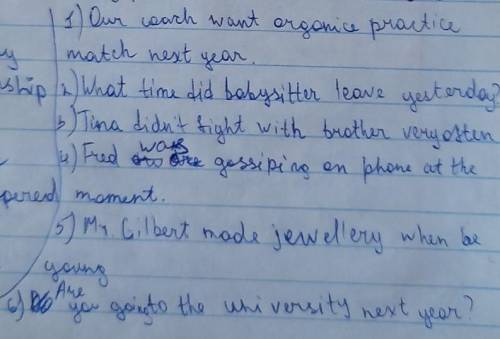 1) Our coach want organice practice
match next year.
ship 2) What time did babysitter leave yesterday?
3) Tina didn't fight with brother very often
4) Fred was gossiping on phone at the
moment.
5) Mr. Gilbert made jewellery when be
young
6) Are you going to the university next year?